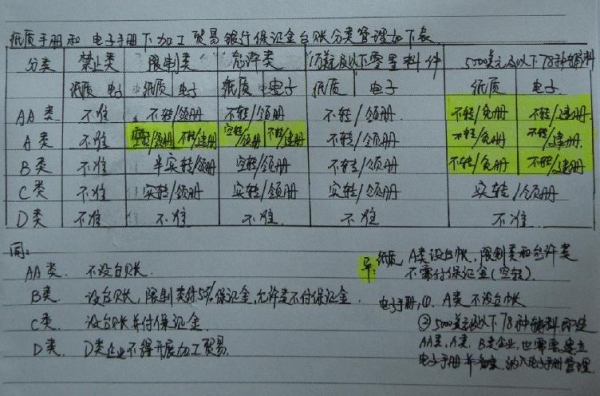 纸质手册和电子手册下加工贸易银行保证金台账分类管理如下表
分类 禁止类 限制类 允许类 1万美元及以下零星料件 5000美元及以下78种辅料
纸质 电子 纸质 电子 纸质 电子 纸质 电子 纸质 电子
AA类 不准 不转/领册 不转/领册 不转/领册 不转/免册 不转/建册
A类 不准 空转/领册 不转/建册 空转/领册 不转/建册 不转/领册 不转/免册 不转/建册
B类 不准 半实转/领册 空转/领册 不转/领册 不转/免册 不转/建册
C类 不准 实转/领册 实转/领册 实转/领册 实转/领册
D类 不准 不准 不准 不准 不准
同:
AA类. 不设台账.
B类 设台账,限制类付50%保证金,允许类不付保证金.
C类 设台账并付保证金.
D类 D类企业不得开展加工贸易.
异: 纸质 A类设台帐,限制类和允许类
不需付保证金(空转)
电子手册:①. A类不设台帐
②5000美元及以下78种辅料
AA类,A类,B类企业,也需要建立
电子手册 纳入电子手册管理